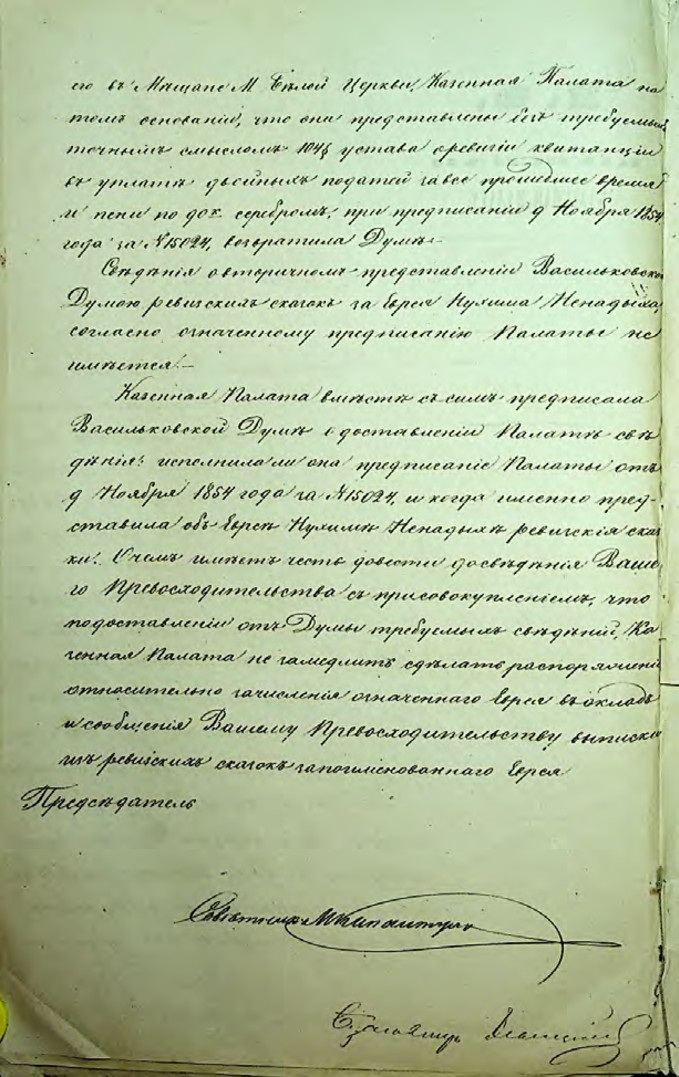 его въ Мѣщане М. Бѣлой Церкви, Казенная Палата на
томъ основаніи, что они представлены безъ требуемыхъ
точнымъ смысломъ устава о ревизіи квитанціи
въ уплатѣ двойныхъ податей за все прошедшее время
и пени по серебромъ, при предписаніи 9 Ноября 1854
года за №15024, возвратила Думѣ.-
Свѣдѣнія о вторичномъ представленіи Васильковскою
Думою ревизскихъ сказокъ за Еврея Нухима Ненадыха,
согласно означенному предписанію Палаты не
имѣется.-
Казенная Палата вмѣстѣ съ симъ предписала
Васильковской Думѣ о доставленіи Палатѣ свѣ
дѣнія: исполнила ли она предписаніе Палаты отъ
9 Ноября 1854 года за №15024, и когда именно пред-
ставила объ Евреѣ Нухимѣ Ненадыхѣ ревизскія сказ
ки. О чемъ имѣетъ честь довести до свѣдѣнія Ваше
го Превосходительства съ присовокупленіемъ, что
по доставленіи отъ Думы требуемыхъ свѣдѣній, Ка
зенная Палата не замедлитъ сдѣлать распоряженіе
относительно зачисленія означеннаго Еврея въ окладъ
и сообщенія Вашему Превосходительству выписки
изъ ревизскихъ сказокъ за поименованнаго Еврея
Предсѣдатель
Совѣтникъ